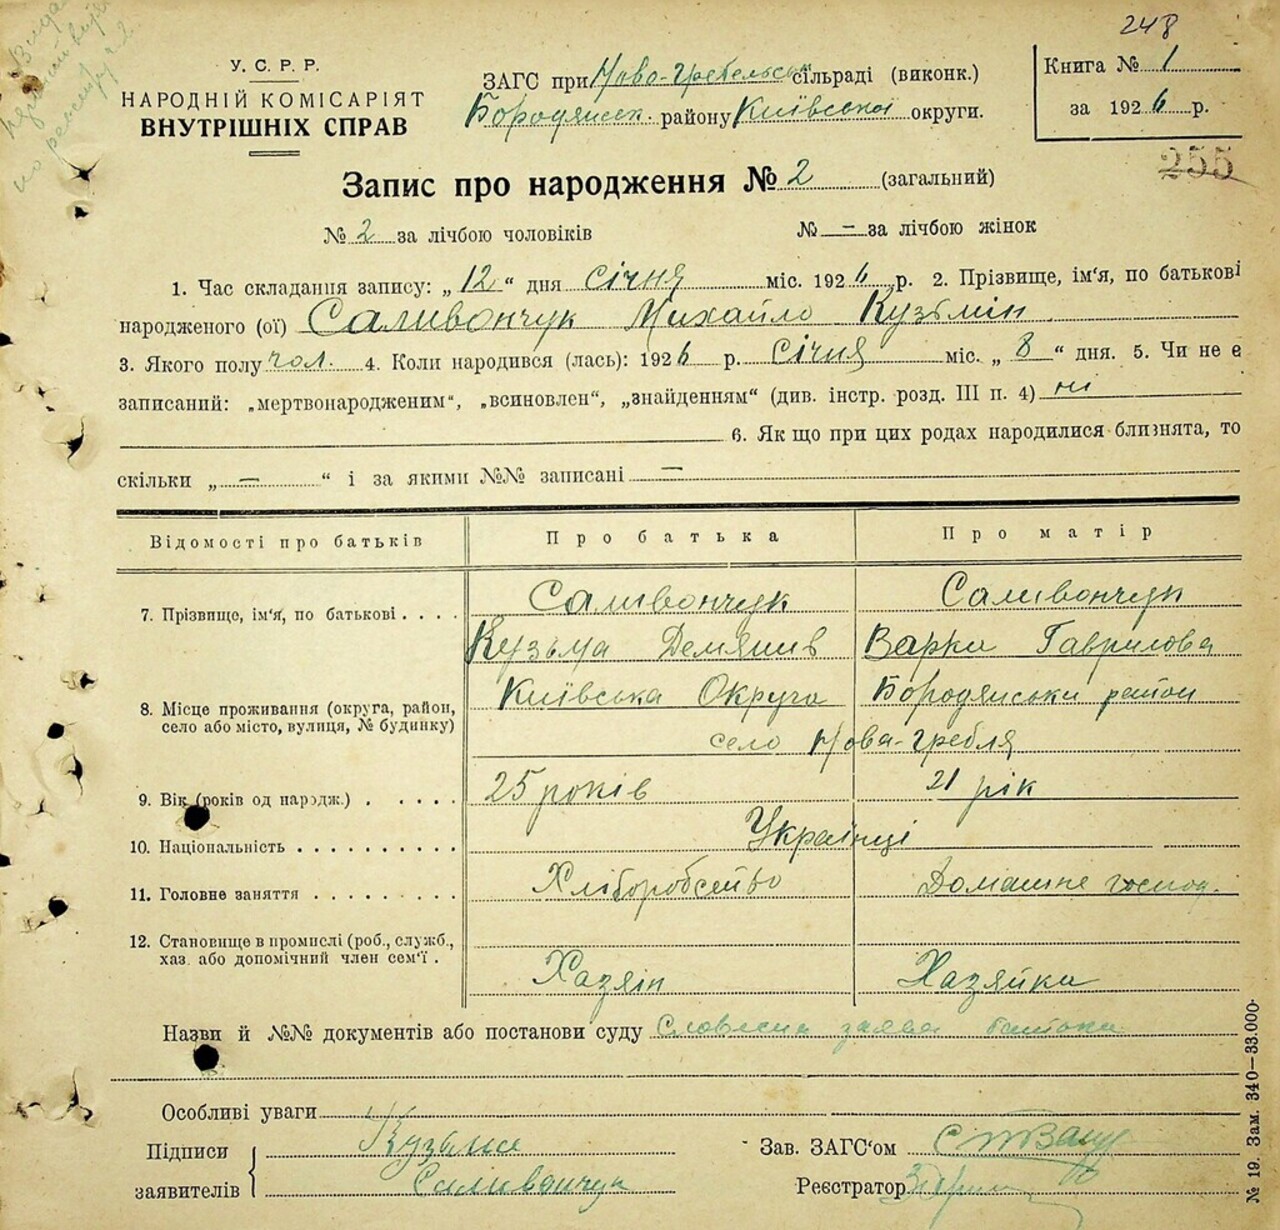 248
У. С. Р. Р.
НАРОДНІЙ КОМІСАРІЯТ
ВНУТРІШНІХ СПРАВ
ЗАГС при Ново-Гребельськ сільраді (виконк.)
Бородянськ. району Київської округи.
Книга № 1
за 1926 р.
255
Запис про народження № 2 (загальний)
№ 2 за лічбою чоловіків № — за лічбою жінок
1. Час складання запису: „ 12 “ дня січня міс. 1926 р. 2. Прізвище, ім'я, по батькові
народженого (ої) Саливончук Михайло Кузьмін
3. Якого полу чол. 4. Коли народився (лась): 1926 р. січня міс. „ 8 “ дня. 5. Чи не є
записаний: „мертвонародженим“, „всиновлен“, „знайденням“ (див. інстр. розд. III п. 4) ні
6. Як що при цих родах народилися близнята, то
скільки „ — “ і за якими №№ записані —
Відомості про батьків Про батька Про матір
7. Прізвище, ім'я, по батькові . . . . Саливончук Саливончук
Кузьма Демянив Варка Гаврилова
8. Місце проживання (округа, район, село або місто, вулиця, № будинку) Київська Округа Бородянськи район
село Нова-Гребля
9. Вік (років од народж.) . . . . . 25 років 21 рік
10. Національність . . . . . . . . . . Українці
11. Головне заняття . . . . . . . . . Хліборобство Домашне господ.
12. Становище в промислі (роб., служб.,
хаз. або допомічний член сем'ї . Хазяін Хазяйка
Назви й №№ документів або постанови суду Словесна заява батька
Особливі уваги
Підписи Кузьма
заявителів Саливончук
Зав. ЗАГС'ом
Реєстратор
№ 19. Зам. 340—33.000